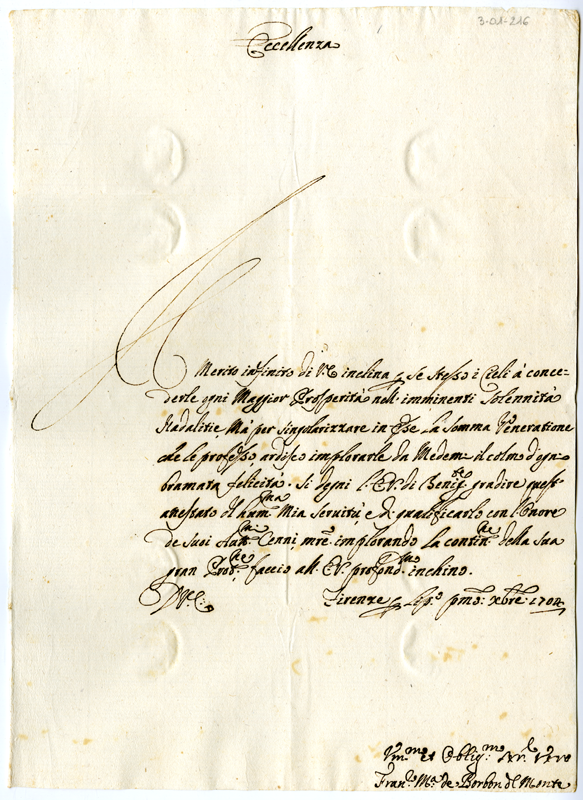 3-01-216
Eccellenza
Il Merito infinito di V.E. inclina p. se stesso i Cieli à conce=
derle ogni Maggior Prosperità nell'imminenti Solennità
Natalitie, Mà per singularizzare in Esse la Somma Veneratione
che le professo ardisco implorarle da Medemi il colmo d'ogni
bramata felicità. Si degni l'E.V. di Benig.te gradire quest'
attestato del hum.ma Mia servitù, e di gratificarlo con l'onore
de suoi Stim.mi Cenni, mre. implorando la contin.ne della sua
gran Prot.ne faccio all'E.V. profond.mo inchino.
D. V. E.
Firenze p.mo Xbre. 1704
Vm.mo et Oblig.mo Ser.e Vero
Fran.co M.a de Borbon del Monte